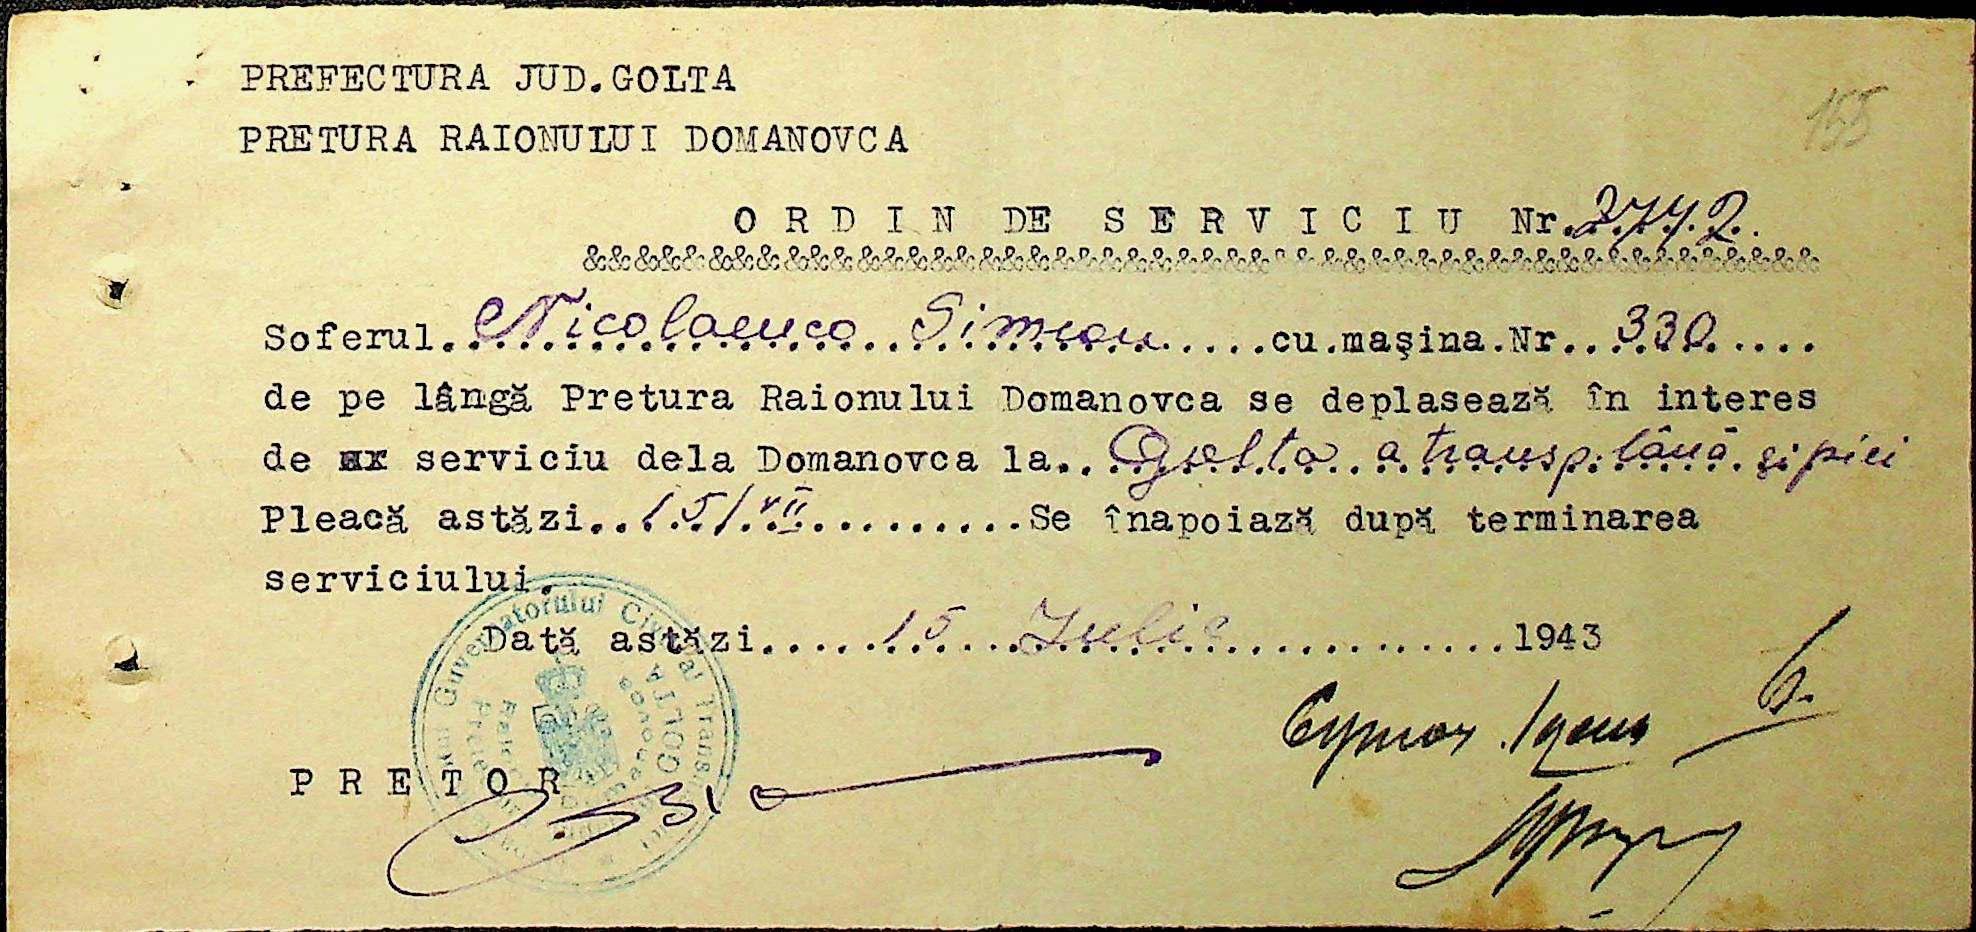 155
PREFECTURA JUD.GOLTA
PRETURA RAIONULUI DOMANOVCA
ORDIN DE SERVICIU Nr. 2742
&&&&&&&&&&&&&&&&&&&&&&&&&&&&&&&&&&&&&&&&&&&&&&&&&&
Soferul. Nicolaenco Simion .....cu.maşina.Nr.. 330 ....
de pe lângă Pretura Raionului Domanovca se deplasează în interes
de serviciu dela Domanovca la.. Golta a transp. lână şi piei
Pleacă astăzi.. 15/VII .........Se înapoiază după terminarea
serviciului.
Dată astăzi..... 15 Iulie ............1943
PRETOR
Guvernatorului Civil al Trans
GOLTA